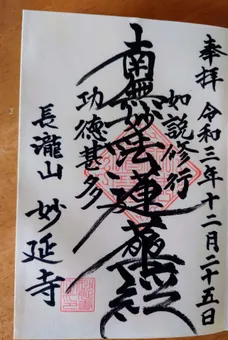 奉拝 令和三年十二月二十五日
如説修行
南無妙法蓮華経
功徳甚多
長瀧山 妙延寺